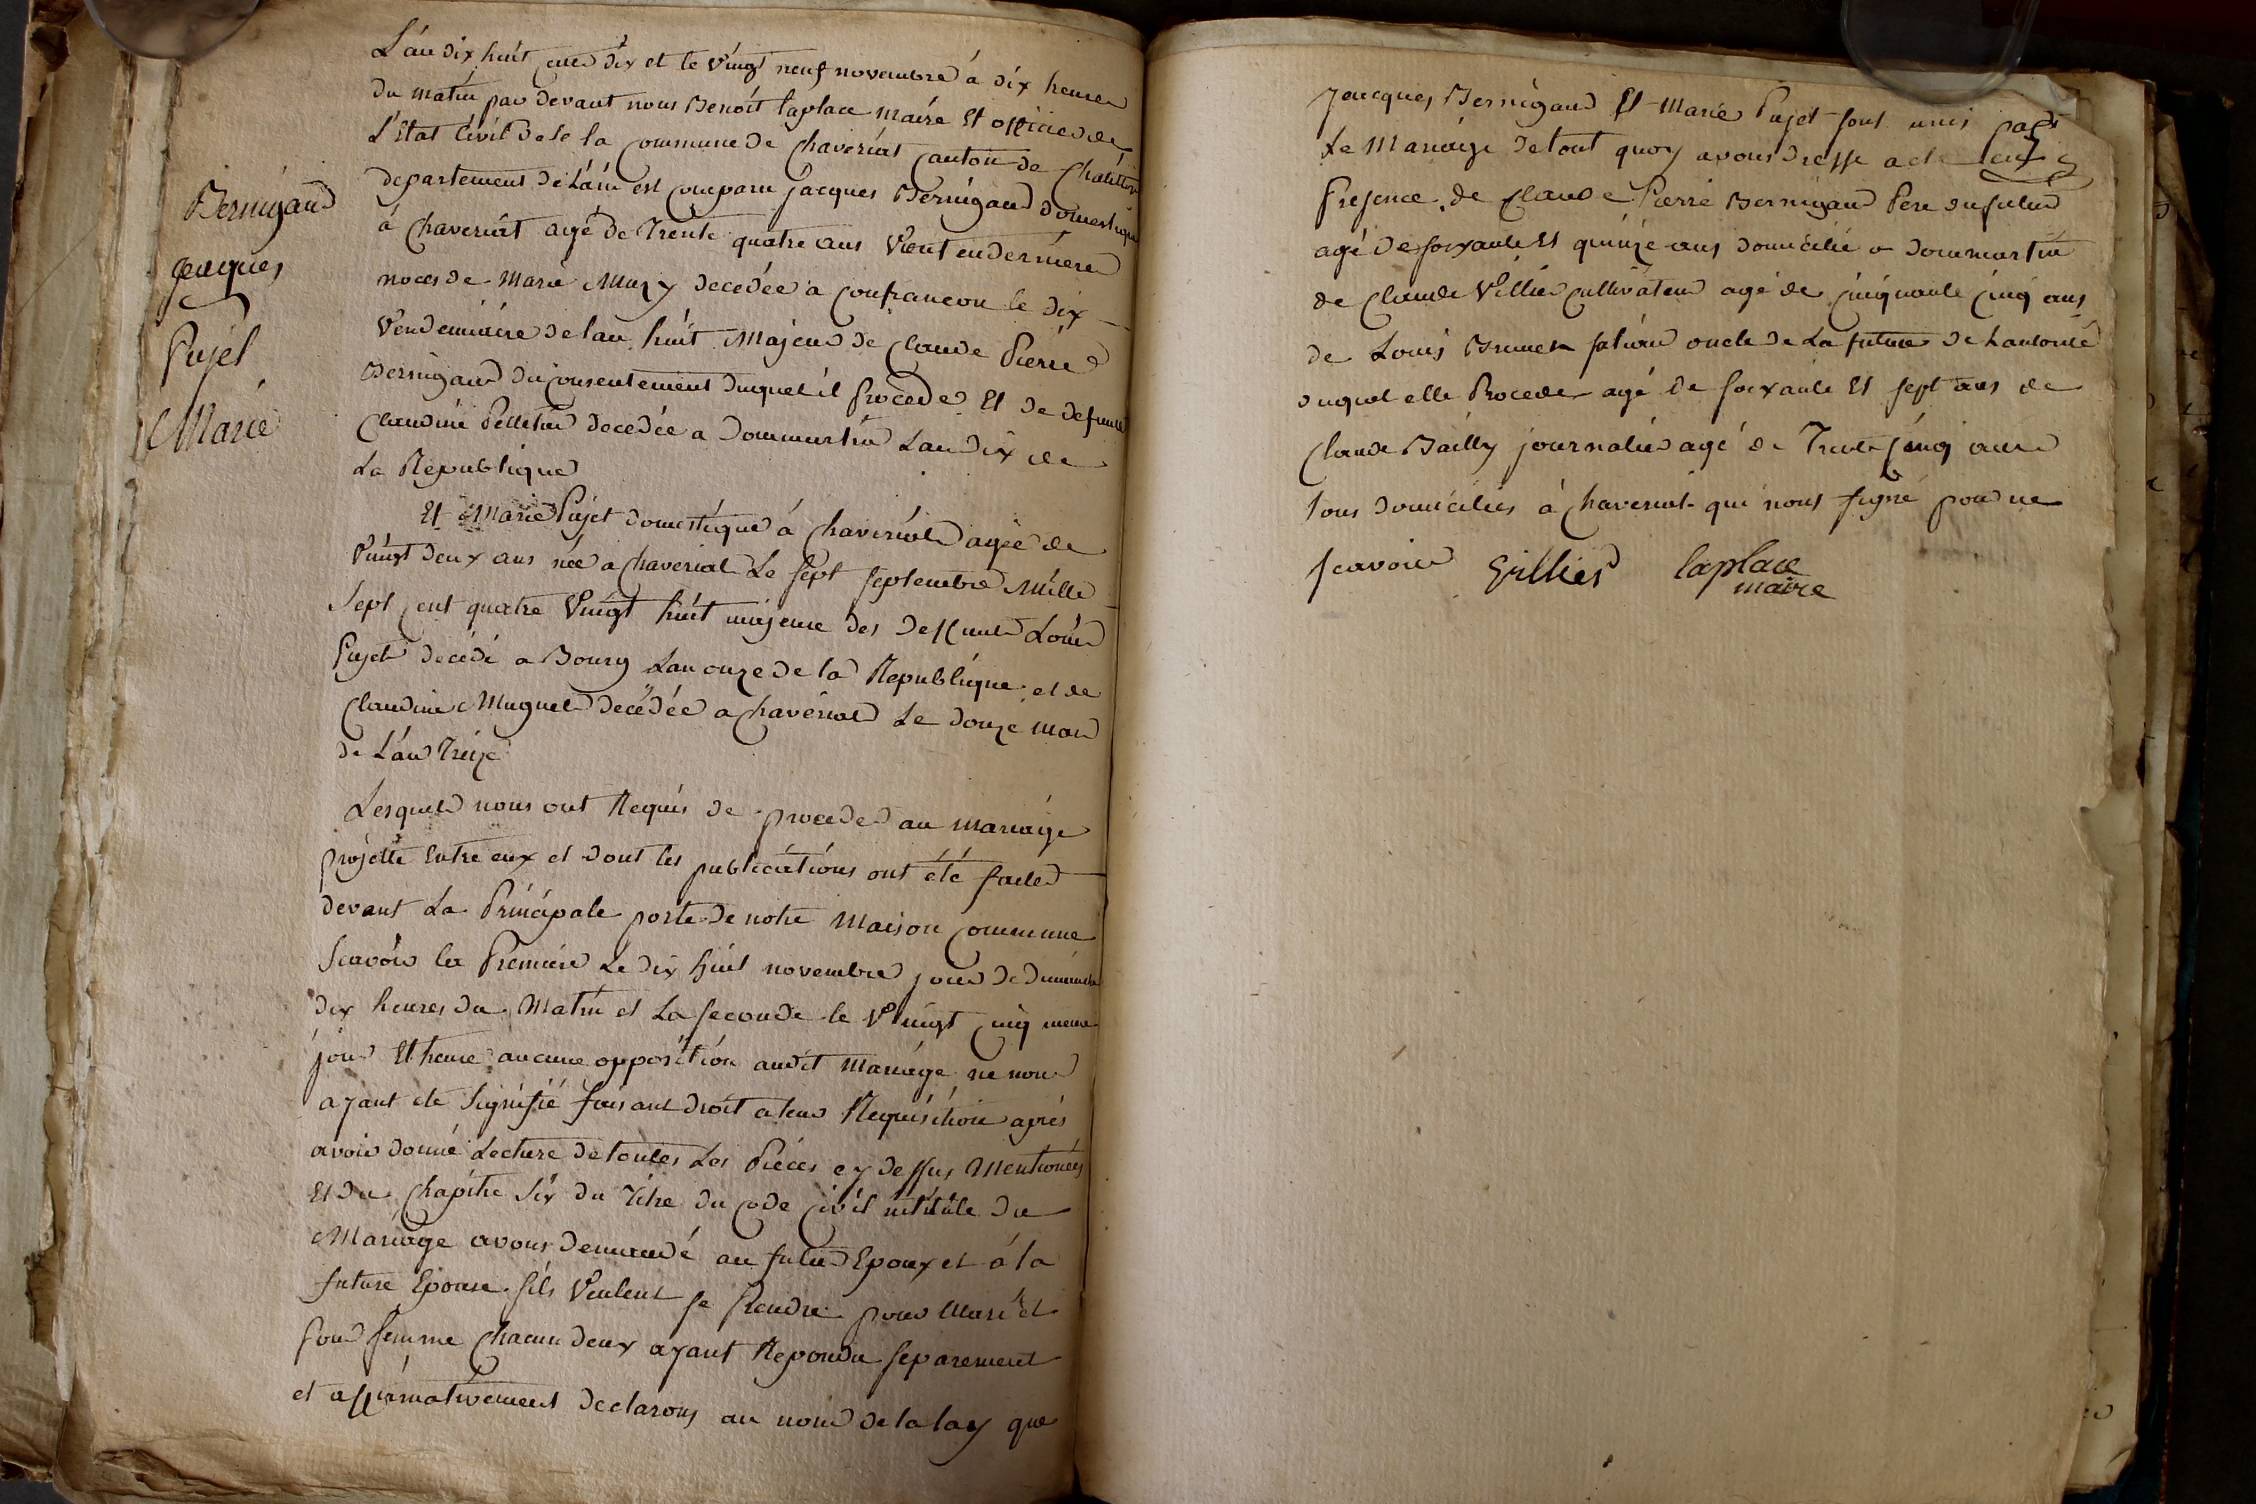 Bernigaud
jacques
Pujet
Marie
L'an dix huit cent dix et le vingt neuf novembre à dix heures
du matin par devant nous Benoit laplace maire Et officier de
L'Etat Civil de la Commune de Chaveriat Canton de Chatillon
departement de L'ain est Comparu jacques Bernigaud domestique
à Chaveriat agé de Trente quatre ans Veuf en dernière
noces de Marie Muzy decedée a Confrancon le dix
Vendemiaire de lan huit Majeur de Claude Pierre
Bernigaud du Consentement duquel il Procede Et de defunte
Claudine Pelletier decedée a dommartin Lan dix de
La Republique
Et Marie Pujet domestique à Chaveriat agée de
Vingt deux ans née a Chaveriat Le sept septembre Mille
Sept Cent quatre Vingt huit majeure des deffunts Louis
Pujet décédé a Bourg Lan onze de la Republique et de
Claudine Muguet decedée a Chaveriat Le douze mars
de L'an Treize
Lesquels nous ont Requis de proceder au mariage
projetté Entre eux et dont les publications ont été faites
devant La Principale porte de notre Maison Commune
Scavoir la Premiere Le dix huit novembre jour de dimanche
dix heures du Matin et La seconde le Vingt Cinq meme
jour Et heure aucune opposition audit Mariage ne nous
ayant ete Signifié faisant droit a leur Requisition après
avoir donné Lecture de toutes Les Piéces cy dessus Mentionées
Et du Chapitre Six du Titre du Code Civil intitule du
Mariage avons demandé au futur Epoux et à la
future Epouse s'ils Veulent se Prendre pour Mari et
Pour femme Chacun deux ayant Repondu separement
et affirmativement declarons au nom de la loy que
jacques Bernigaud Et Marie Pujet sont unis par
Le Mariage de tout quoy avons dressé acte en
Presence de Claude Pierre Bernigaud Pere du futur
agé de soixante Et quinze ans domicilié a dommartin
de Claude Villier Cultivateur agé de Cinquante Cinq ans
de Louis Brunet oncle de La future de Lautorité
duquel elle Procede agé de soixante Et sept ans de
Claude Bailly journalier agé de Trente Cinq ans
tous domiciliés à Chaveriat qui nont signé pour ne
scavoir Gillier laplace
maire